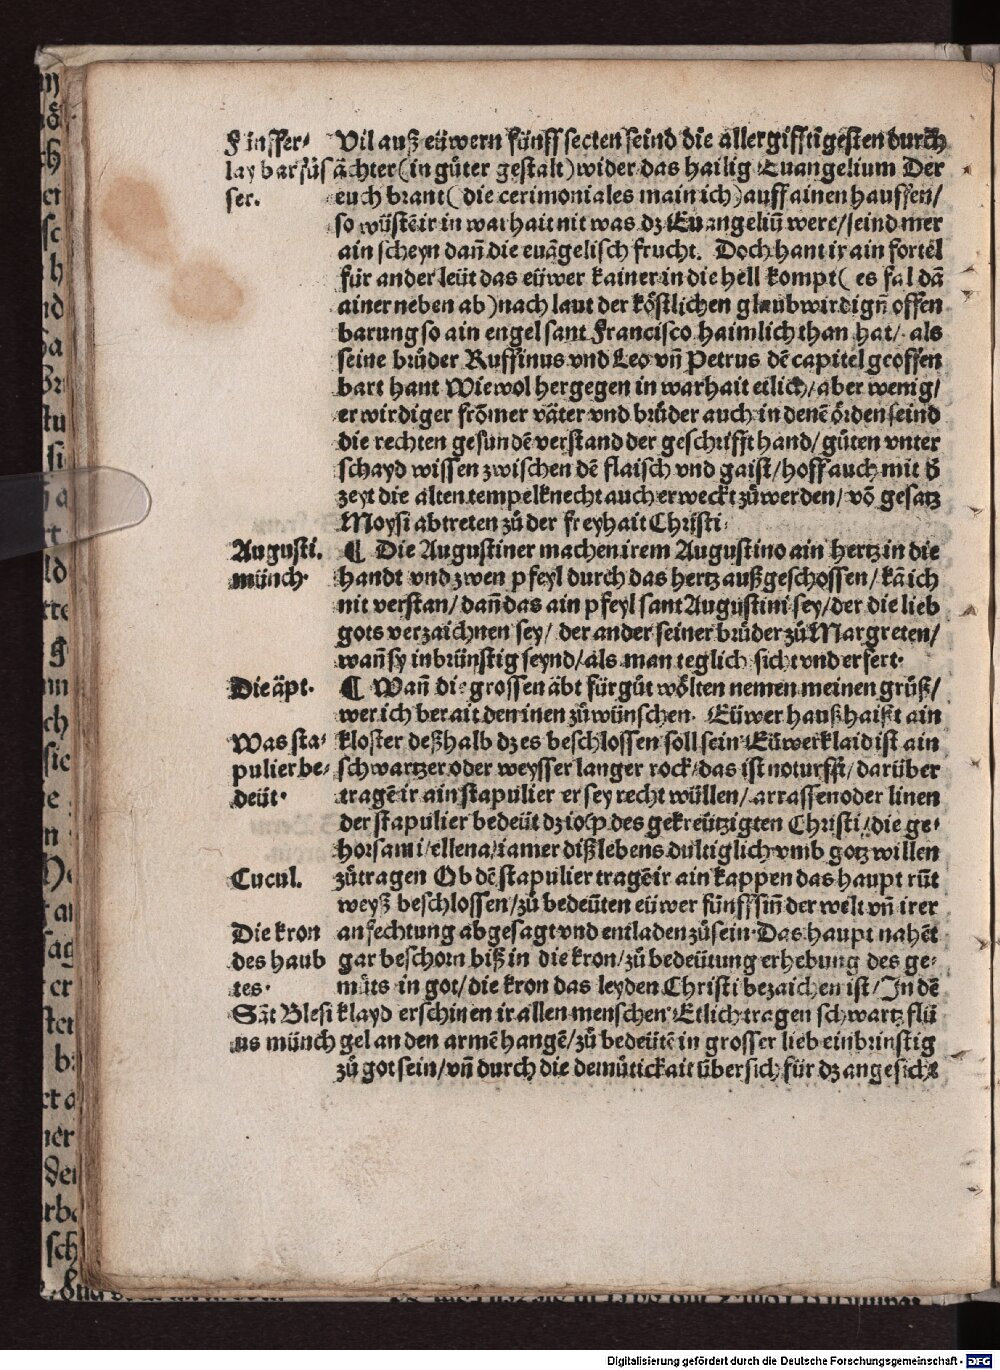 Finffer-
lay barfüs
ser.
Vil auß eüwern fünff secten seind die allergifftigesten durch
ächter (in güter gestalt) wider das hailig Euangelium Der
euch brant (die cerimoniales main ich) auff ainen hauffen/
so wüstē ir in warhait nit was dz Euangeliū were/ seind mer
ain scheyn dañ die euāgelisch frucht. Doch hant ir ain fortel
für ander leüt das eüwer kainer in die hell kompt (es fal dā
ainer neben ab) nach laut der köstlichen glaubwirdigñ offen
barung so ain engel sant Francisco haimlich than hat/ als
seine brüder Ruffinus vnd Leo vñ Petrus dē capitel geoffen
bart hant Wiewol hergegen in warhait etlich/ aber wenig/
erwirdiger frōmer väter vnd brüder auch in denē örden seind
die rechten gesundē verstand der geschrifft hand/ gůten vnter
schayd wissen zwischen dē flaisch vnd gaist/ hoff auch mit d̄
zeyt die alten tempelknecht auch erweckt zůwerden/ vō gesatz
Moysi abtreten zů der freyhait Christi.
Augusti.
münch.
¶ Die Augustiner machen irem Augustino ain hertz in die
handt vnd zwen pfeyl durch das hertz außgeschossen/ kā ich
nit verstan/ dañ das ain pfeyl sant Augustini sey/ der die lieb
gots verzaichnen sey/ der ander seiner brüder zů Margreten/
wañ sy inbrünstig seynd/ als man teglich sicht vnd erfert.
Die äpt.
¶ Wañ die grossen äbt für gůt wölten nemen meinen grůß/
wer ich berait den inen zůwünschen. Eüwer hauß haißt ain
Was sta-
pulier be-
deüt.
kloster deßhalb dz es beschlossen soll sein Eüwer klaid ist ain
schwartzer oder weysser langer rock/ das ist noturfft/ darüber
tragē ir ain stapulier er sey recht wüllen/ arrassen oder linen
der stapulier bedeüt dz ioch des gekreützigten Christi/ die ge-
horsami/ ellena/ iamer diß lebens dultiglich vmb gotz willen
Cucul.
zůtragen Ob dē stapulier tragē ir ain kappen das haupt rūt
weyß beschlossen/ zů bedeüten eüwer fünff siñ der welt vñ irer
Die kron
des haub
tes.
anfechtung abgesagt vnd entladen zůsein. Das haupt nahēt
gar beschorn biß in die kron/ zů bedeütung erhebung des ge-
müts in got/ die kron das leyden Christi bezaichen ist/ In dē
Sāt Blesi
us münch
klayd erschinen ir allen menschen Etlich tragen schwartz flü
gel an den armē hangē/ zů bedeütē in grosser lieb einbrinstig
zů got sein/ vñ durch die demütickait übersich für dz angesicht
Digitalisierung gefördert durch die Deutsche Forschungsgemeinschaft - DFG